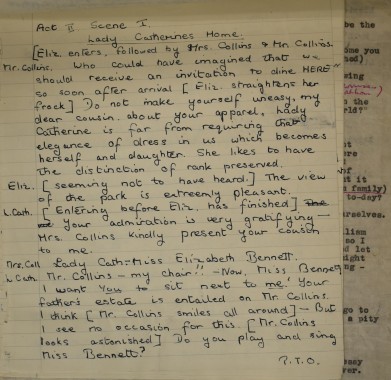 Act II Scene I.
Lady Catherines Home.
[Eliz. enters, followed by Mrs. Collins & Mr. Collins.
Mr. Collins. Who could have imagined that we
should receive an invitation to dine HERE
so soon after arrival [Eliz. straightens her
frock] Do not make yourself uneasy, my
dear cousin about your apparel, Lady
Catherine is far from requiring that
elegance of dress in us which becomes
herself and daughter. She likes to have
the distinction of rank preserved.
Eliz. [seeming not to have heard.] The view
of the park is extreemly pleasant.
L. Cath. [Entering before Eliz. has finished] The
Your admiration is very gratifying —
Mrs. Collins kindly present your cousin
to me.
Mrs. Coll Lady Cath: Miss Elizabeth Bennett.
L. Cath. Mr. Collins — my chair!! — Now, Miss Bennett
I want You to sit next to me! Your
father's estate is entailed on Mr. Collins.
I think [Mr. Collins smiles all around] — But
I see no occasion for this. [Mr. Collins
looks astonished] Do you play and sing
Miss Bennett?
P.T.O.
be the
you
family)
to-day?
urselves.
go to
a pity